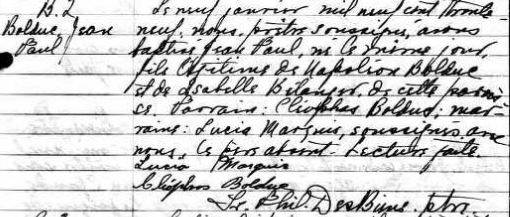 B. 2
Bolduc Jean
Paul
Le neuf janvier mil neuf cent trente-
neuf, nous, prêtre soussigné, avons
baptisé Jean Paul, né le même jour,
fils légitime de Napoléon Bolduc
et de Isabelle Bélanger, de cette parois-
se. Parrain: Cléophas Bolduc; mar-
raine: Lucia Marquis, soussignés avec
nous. Le père absent. Lecture faite.
Lucia Marquis
Cléophas Bolduc
Phil. DesBiens, ptre